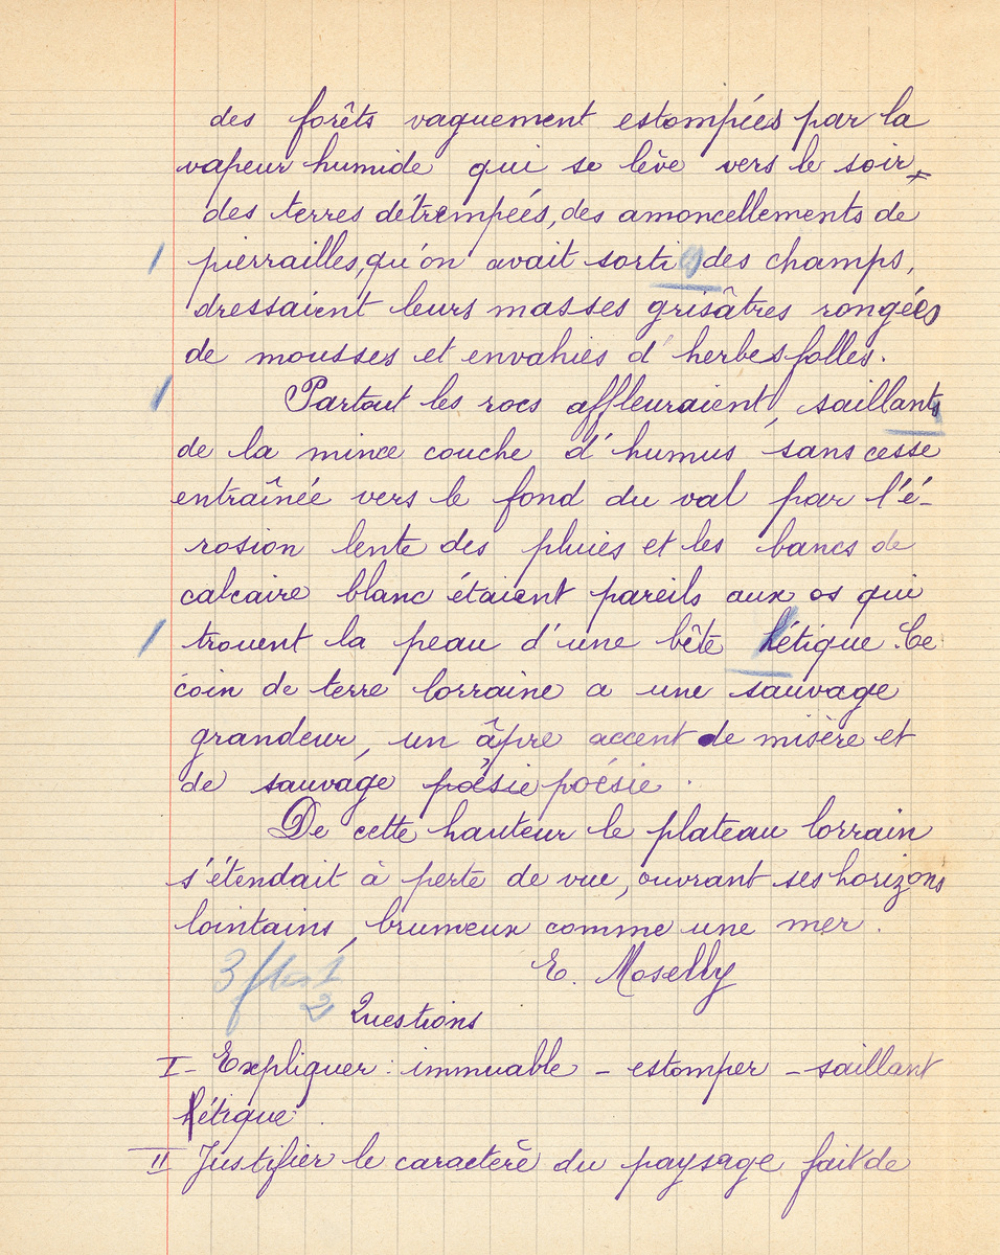 des forêts vaguement estompées par la
vapeur humide qui se lève vers le soir
des terres détrempées, des amoncellements de
pierrailles, qu'on avait sorti des champs,
dressaient leurs masses grisâtres rongées
de mousses et envahies d'herbes folles.
Partout les rocs affleuraient, saillants
de la mince couche d'humus sans cesse
entraînée vers le fond du val par l'é-
rosion lente des pluies et les bancs de
calcaire blanc étaient pareils aux os qui
trouent la peau d'une bête hétique. Ce
coin de terre lorraine a une sauvage
grandeur, un âpre accent de misère et
de sauvage poésie poésie.
De cette hauteur le plateau lorrain
s'étendait à perte de vue, ouvrant ses horizons
lointains, brumeux comme une mer.
E. Moselly
3 fautes
2
Questions
I - Expliquer : immuable - estomper - saillant
hétique.
II Justifier le caractère du paysage fait de